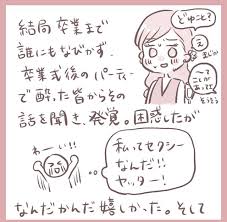 結局卒業まで
誰にもなびかず、
卒業式後のパーティー
で酔った皆からその
話を聞き、発覚。困惑したが
どゆこと?
え
まじか
〜って
ことが
あって
そうそう
わーい!!
私ってセクシー
なんだ!!
ヤッター!
なんだかんだ嬉しかった。そして